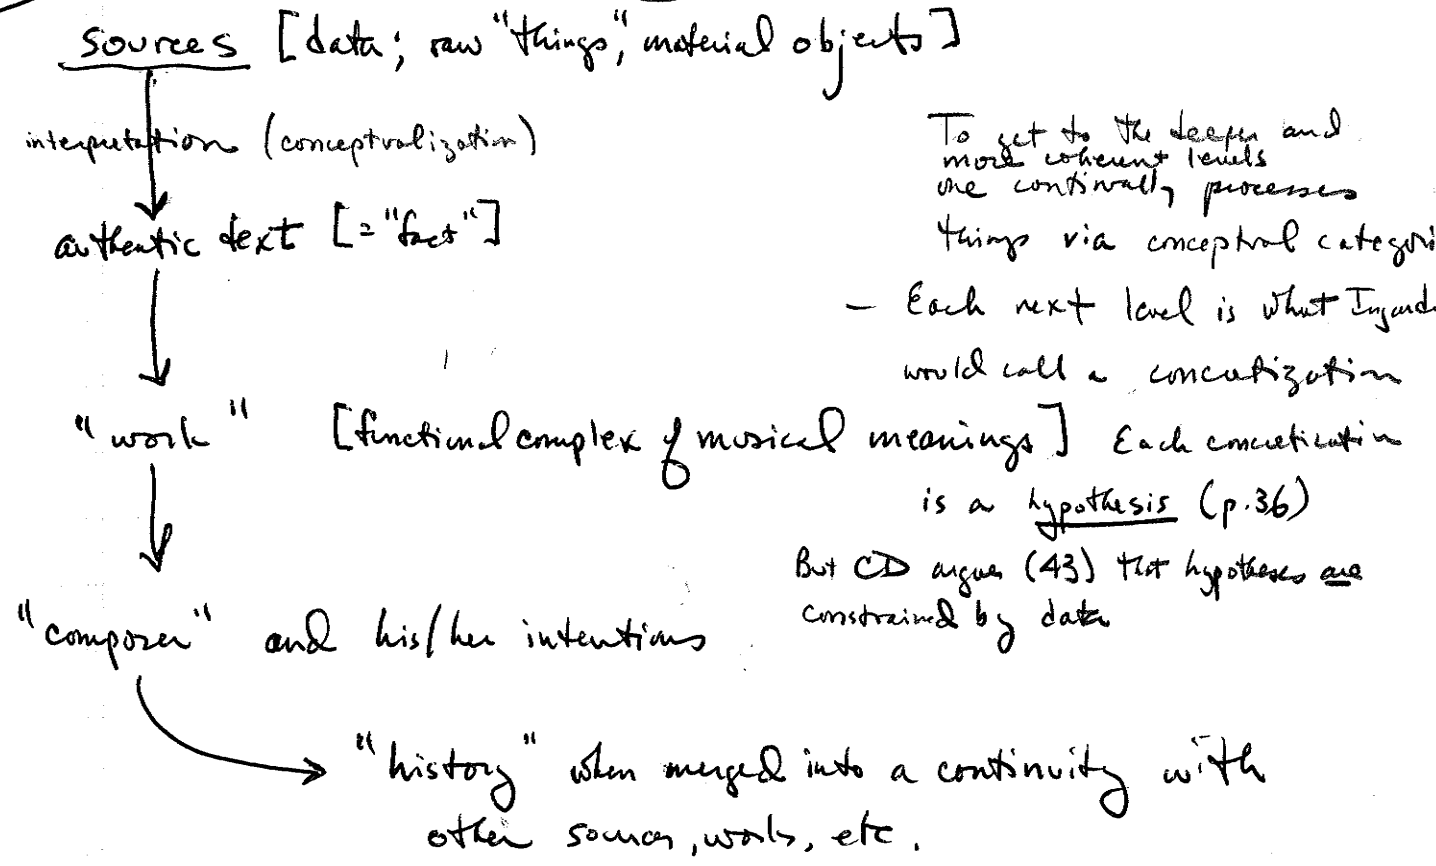 sources [data; raw "things", material objects]
interpretation (conceptualization)
authentic text [="fact"]
"work" [functional complex of musical meanings]
"composer" and his/her intentions
"history" when merged into a continuity with
other sources, works, etc.
To get to the deeper and
more coherent levels
one continually processes
things via conceptual categori
— Each next level is what Ingard
would call a concretization
Each concretization
is a hypothesis (p.36)
But CD argues (43) that hypotheses are
constrained by data